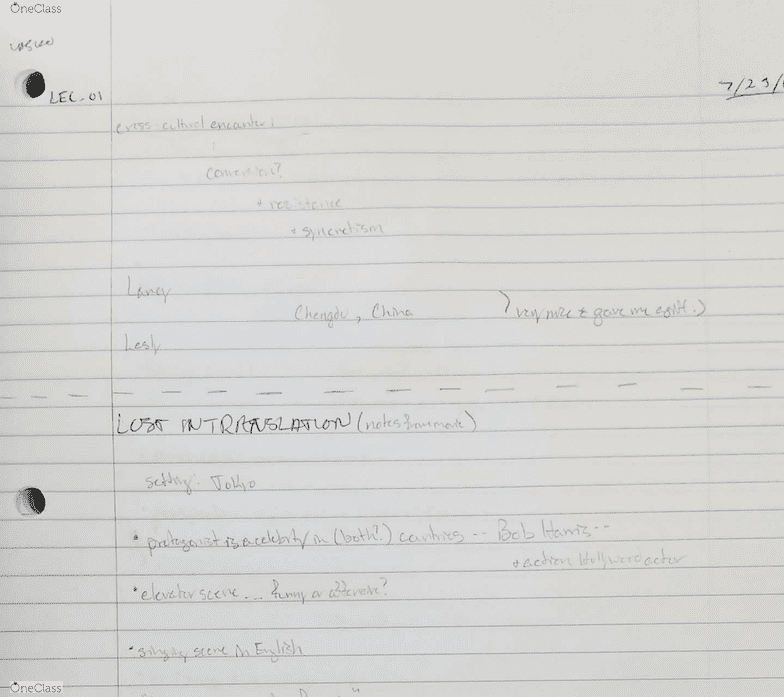 OneClass
LEC-01
7/23/
cross cultural encounter:
+ resistence
+ syncretism
Lancy
Chengdu, China
very nice & gave me
Lesly
LOST IN TRANSLATION (notes from movie)
setting: Tokio
• protagonist is a celebrity in (both?) countries -- Bob Harris --
+ action Hollywood actor
• elevator scene... funny or offensive?
• singing scene in English
OneClass